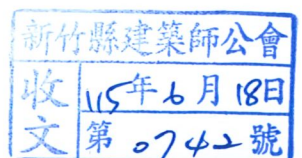 新竹縣建築師公會
收文
115年6月18日
第0742號